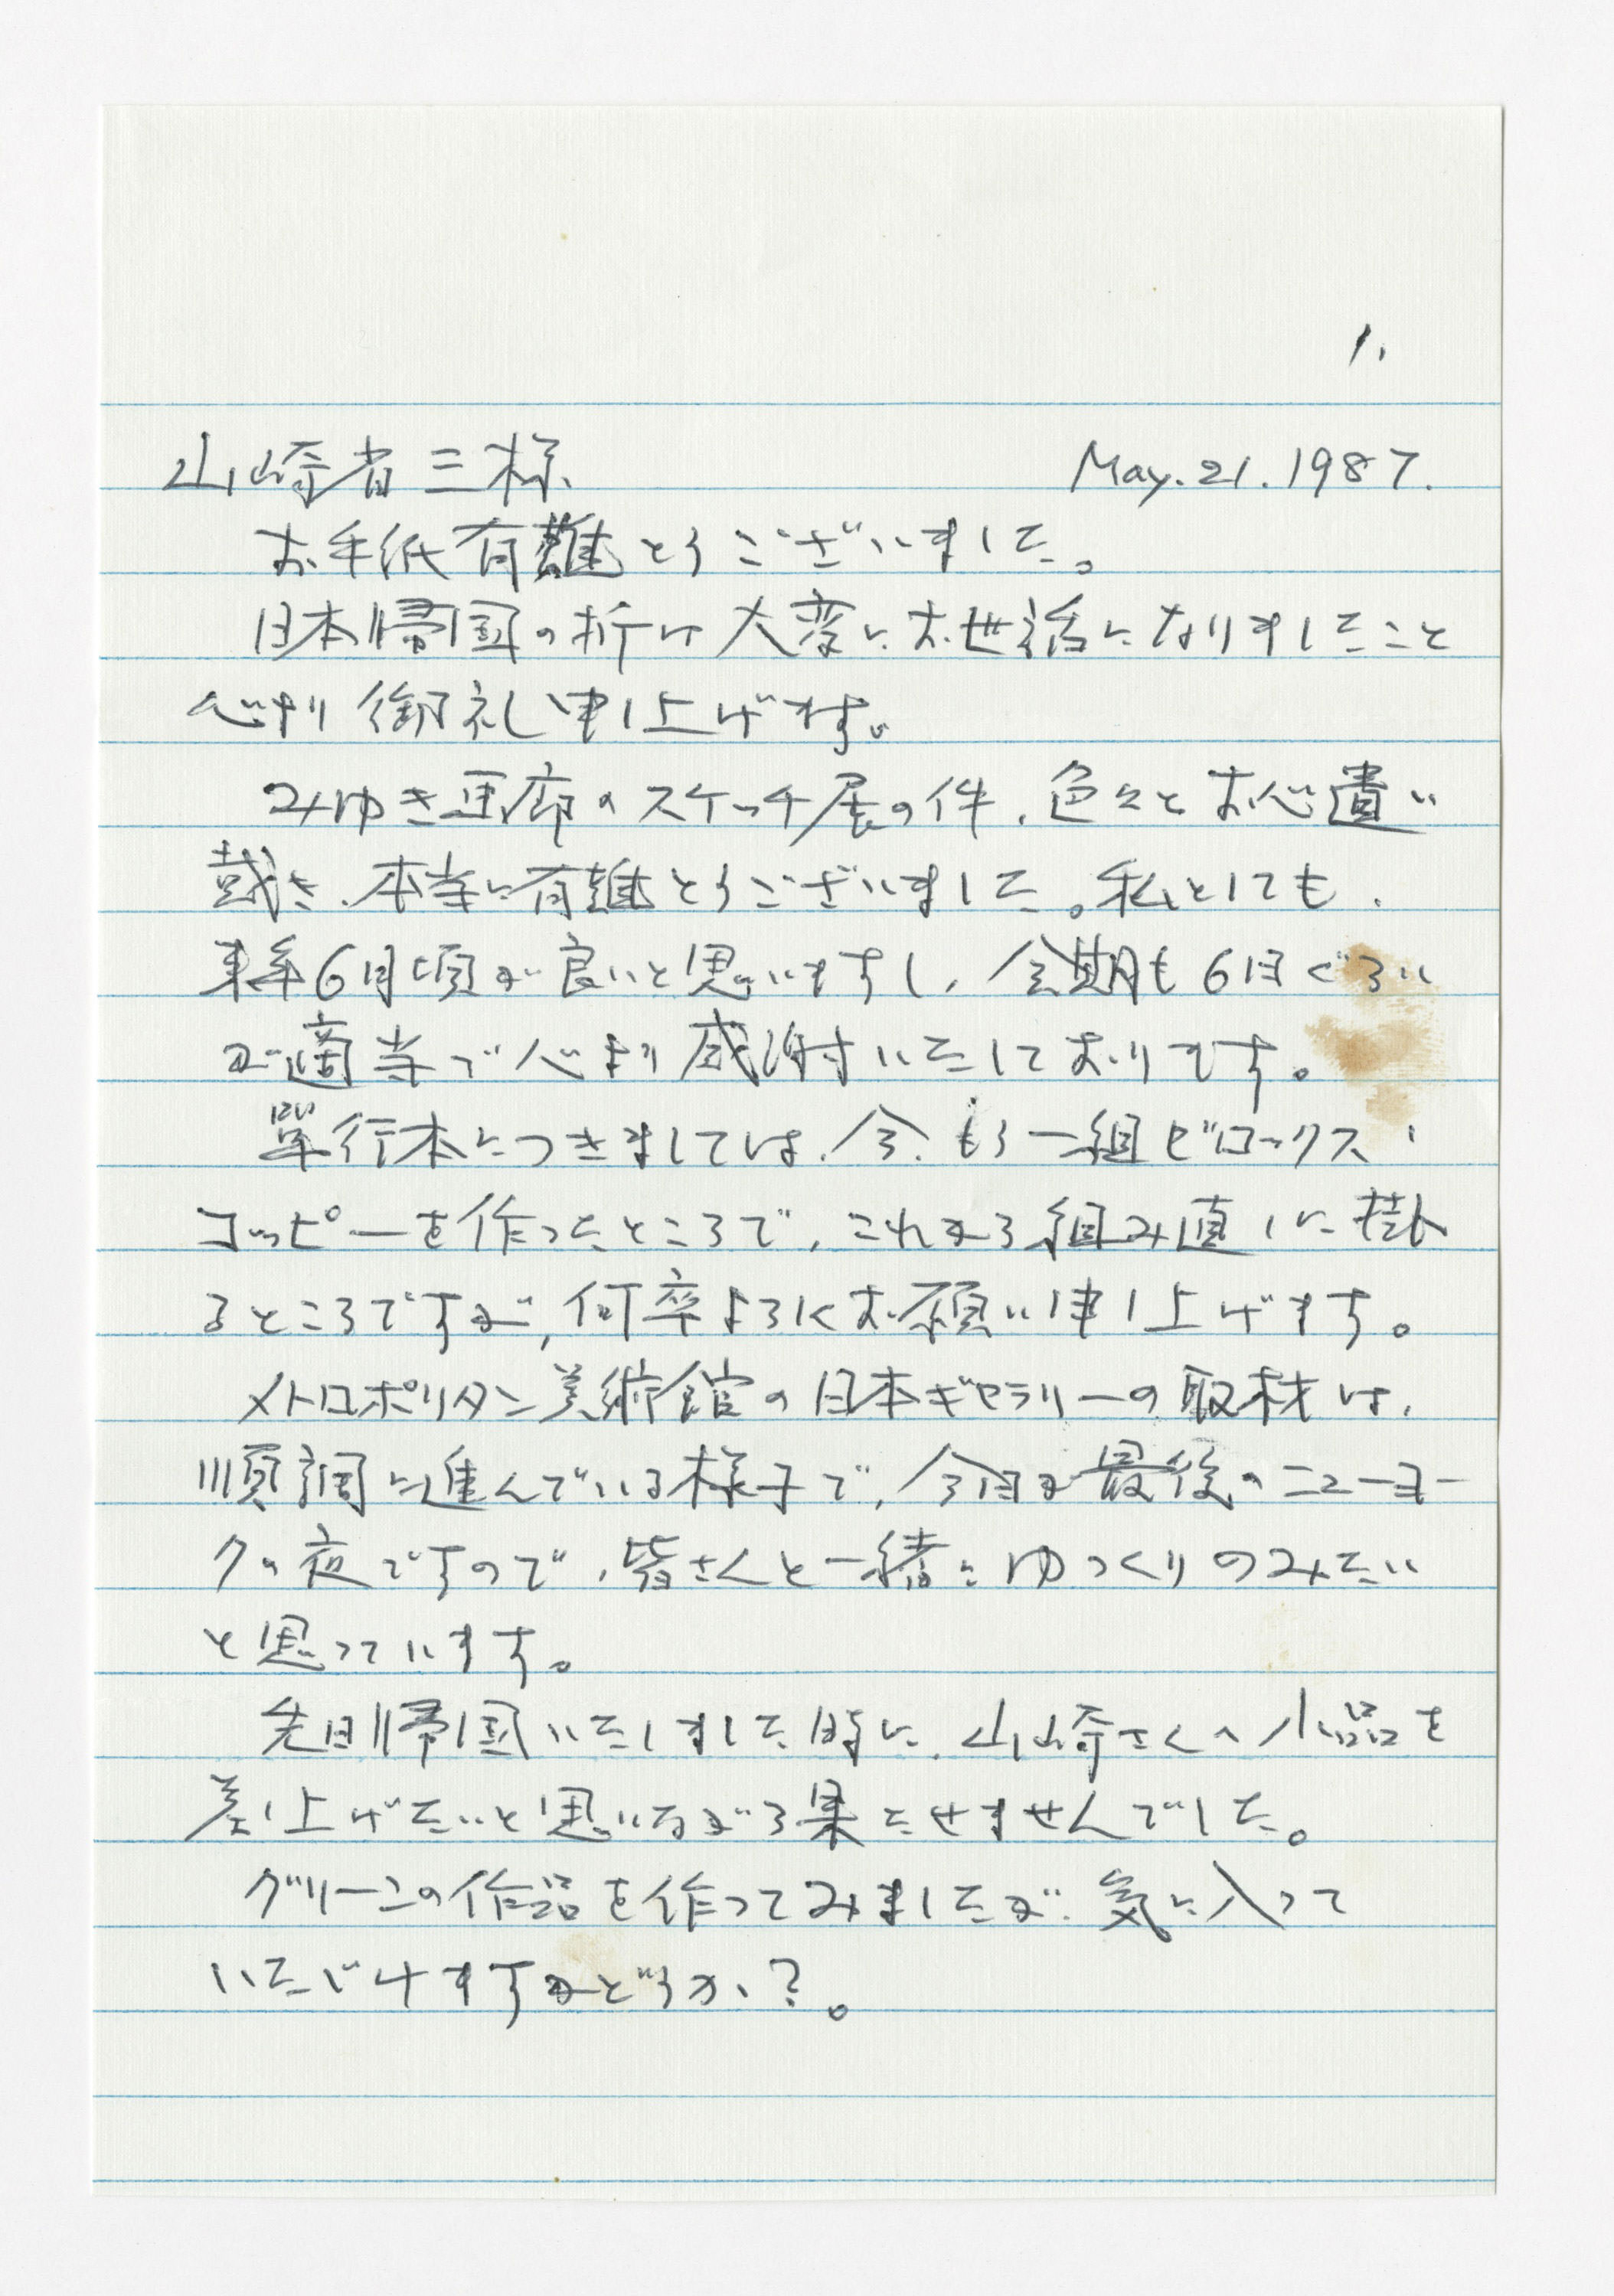 1.
山崎省三様 May. 21. 1987.
お手紙有難とうございました。
日本帰国の折は大変にお世話になりましたこと
心より御礼申し上げます。
みゆき画廊のスケッチ展の件、色々とお心遣い
戴き、本当に有難とうございました。私としても、
来年6月頃が良いと思いますし、会期も6日ぐらい
が適当で心より感謝いたしております。
單行本につきましては、今、もう一組ゼロックス・
コッピーを作ったところで、これから組み直しに掛
るところですが、何卒よろしくお願い申し上げます。
メトロポリタン美術館の日本ギャラリーの取材は、
順調に進んでいる様子で、今日が最後のニューヨー
クの夜ですので、皆さんと一緒にゆっくりのみたい
と思っています。
先日帰国いたしました時に、山崎さんへ小品を
差し上げたいと思いながら果たせませんでした。
グリーンの作品を作ってみましたが、気に入って
いただけますかどうか?。